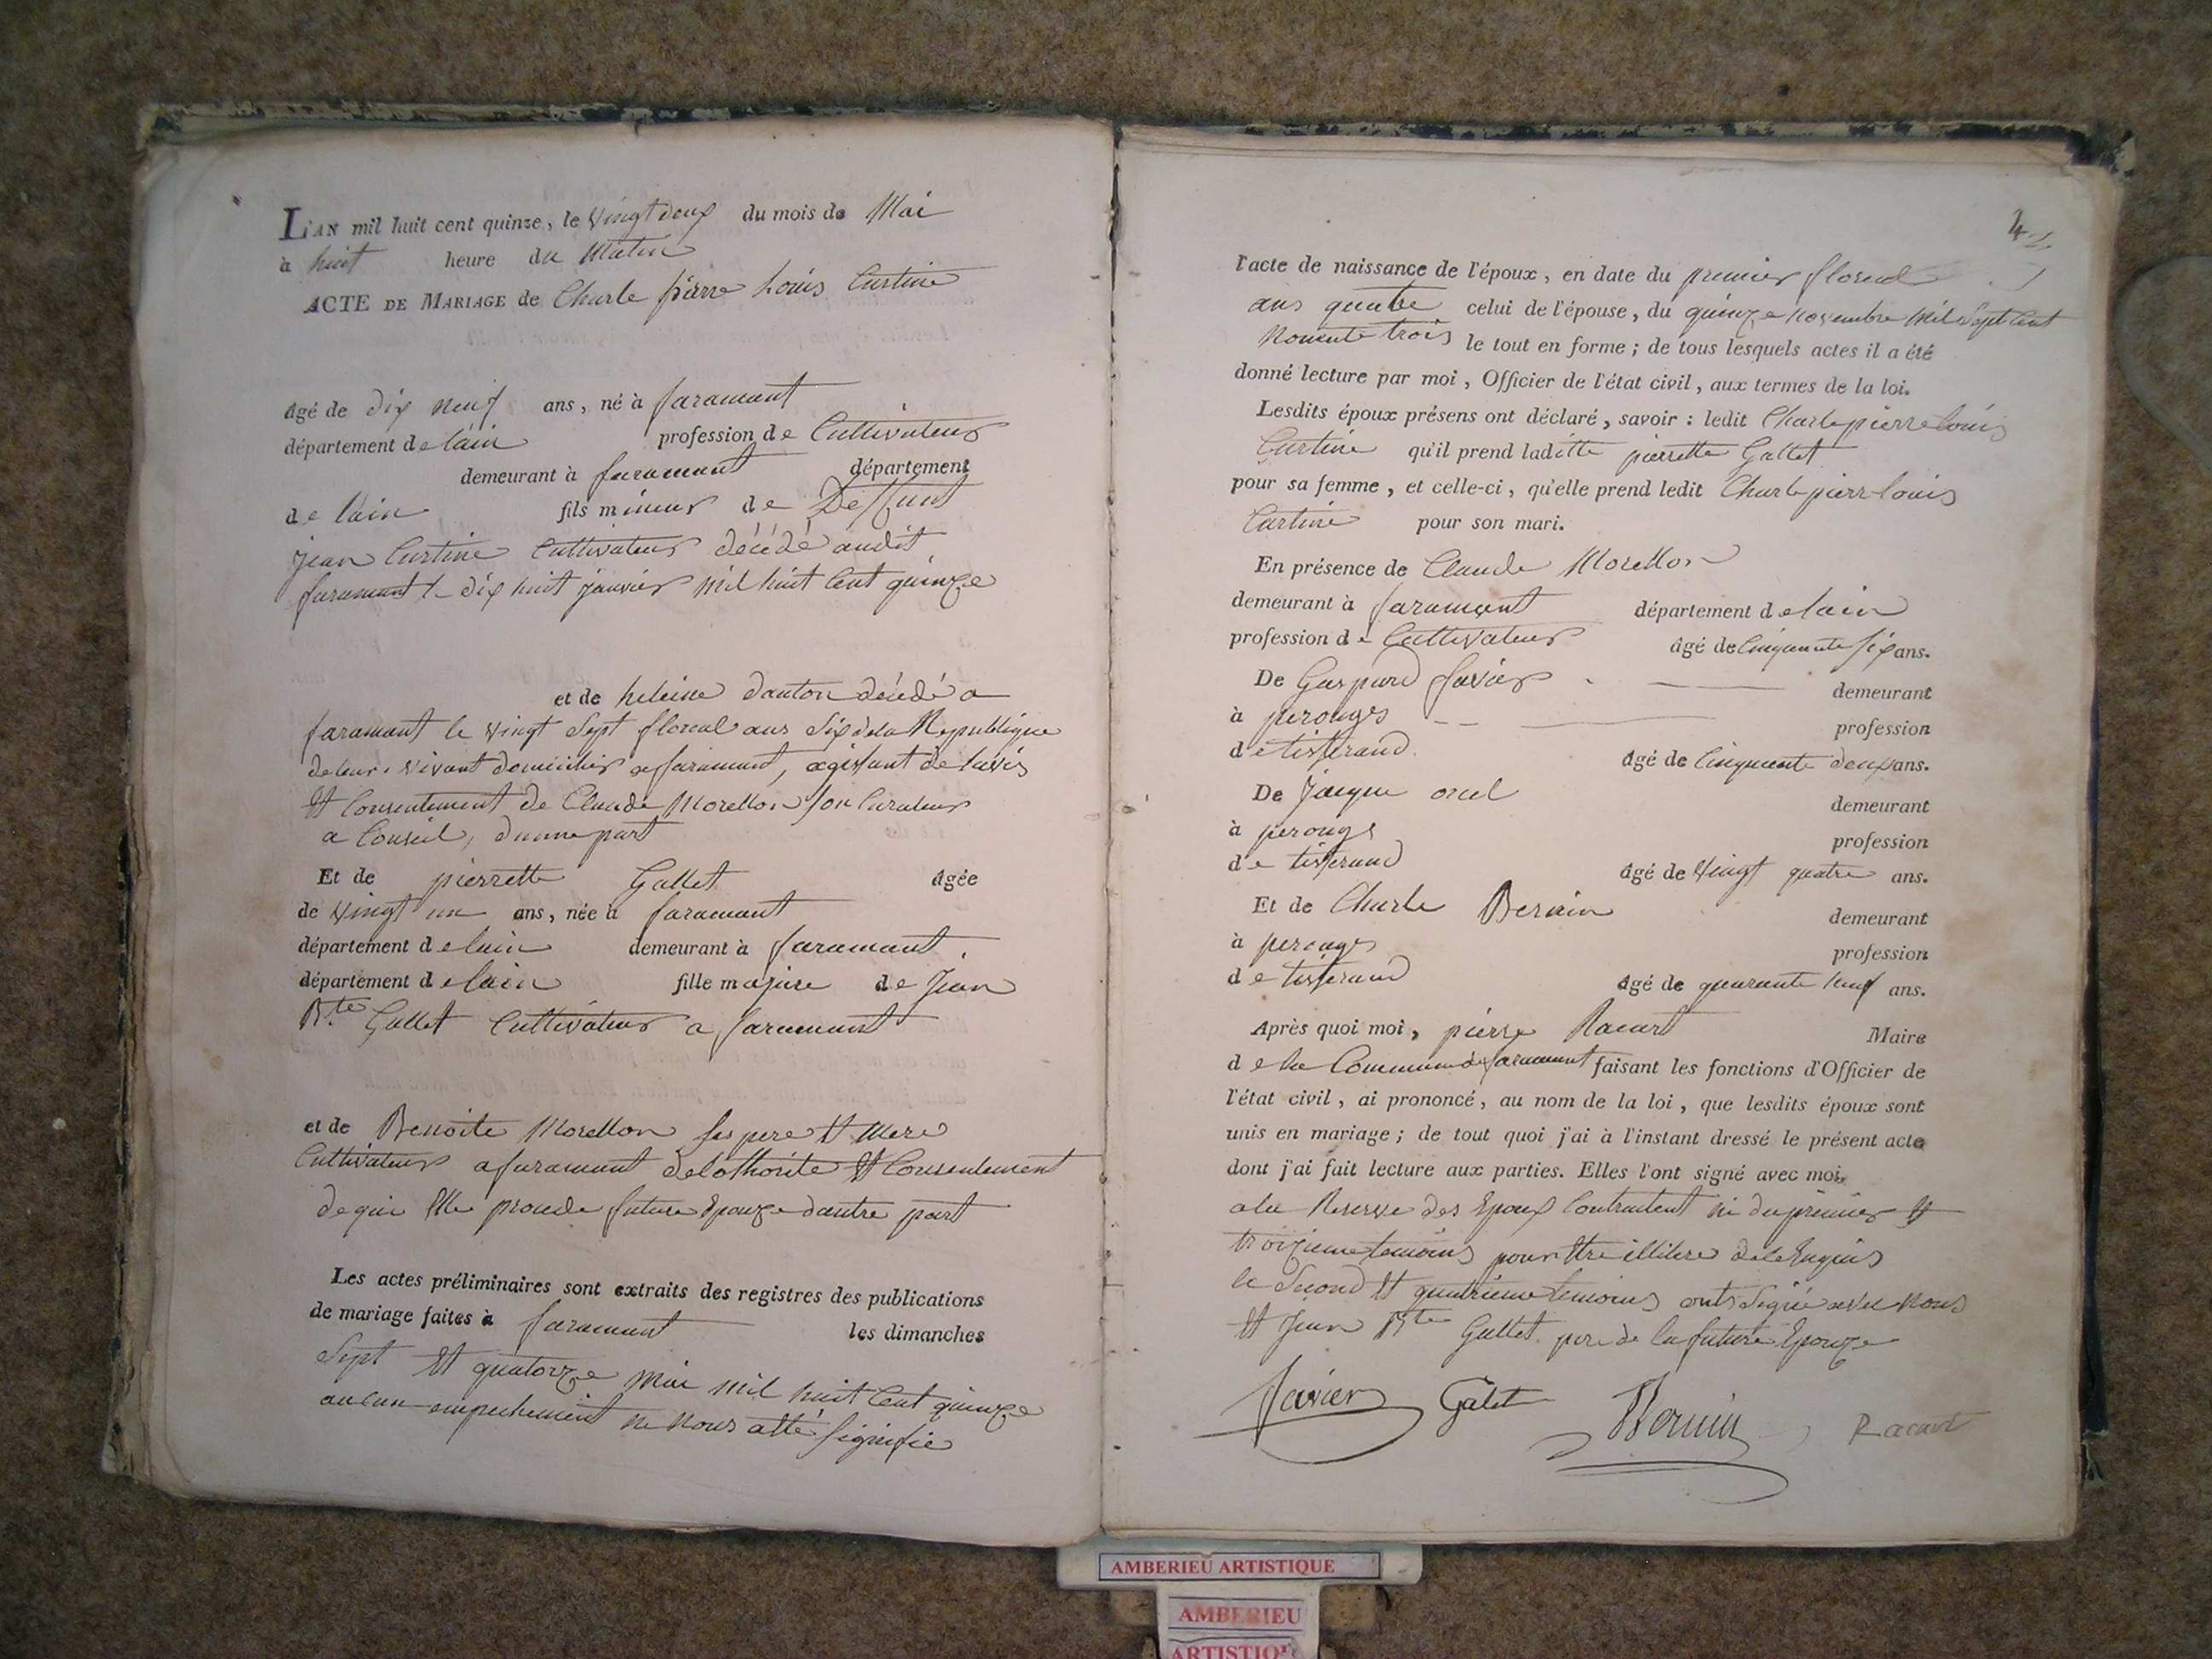 L'AN mil huit cent quinze, le vingt deux du mois de Mai
à huit heure du Matin
ACTE DE MARIAGE de Charle pierre Louis Curtine
âgé de dix neuf ans, né à faramant
département de lain profession de Cultivateur
demeurant à faramant département
de lain fils mineur de Deffunt
jean Curtine Cultivateur décédé audit
faramant le dix huit janvier mil huit Cent quinze
et de heleine danton décédé a
faramant le vingt Sept floreal ans Six de la Republique
de leur vivant domiciliés a faramant, agissant de lavis
Et Consentement de Claude Morellon son Curateur
a Conseil, dunne part
Et de pierrette Gallet âgée
de vingt un ans, née à faramant
département de lain demeurant à faramant
département de lain fille majure de Jean
Bte Gallet Cultivateur a faramant
et de Benoite Morellon ses pere Et Mere
Cultivateurs a faramant delothorite Et Consentement
de qui Elle procede future Epouze dautre part
Les actes préliminaires sont extraits des registres des publications
de mariage faites à faramant les dimanches
Sept Et quatorze mai mil huit Cent quinze
aucun empechement ne nous a été signifié
l'acte de naissance de l'époux, en date du premier floreal
ans quatre celui de l'épouse, du quinze novembre Mil Sept Cent
Nonente trois le tout en forme; de tous lesquels actes il a été
donné lecture par moi, Officier de l'état civil, aux termes de la loi.
Lesdits époux présens ont déclaré, savoir: ledit Charle pierre Louis
Curtine qu'il prend ladite pierrette Gallet
pour sa femme, et celle-ci, qu'elle prend ledit Charle pierr Louis
Curtine pour son mari.
En présence de Claude Morellon
demeurant à faramant département de lain
profession de Cultivateur âgé de Cinquante six ans.
De Gaspard favier demeurant
à perouges profession
de tisserand âgé de Cinquante deux ans.
De Jacque orcel demeurant
à perouges profession
de tisserand âgé de Vingt quatre ans.
Et de Charle Bernin demeurant
à perouges profession
de tisserand âgé de quarante neuf ans.
Après quoi moi, pierre Racurt Maire
de la Commune de faramant faisant les fonctions d'Officier de
l'état civil, ai prononcé, au nom de la loi, que lesdits époux sont
unis en mariage; de tout quoi j'ai à l'instant dressé le présent acte
dont j'ai fait lecture aux parties. Elles l'ont signé avec moi,
a la Reserve des Epoux Contractent ni du premier Et
troizieme temoins pour Etre illitere de le Enquis
le Second Et quatrieme temoins onts Signé avec nous
Et Jean Bte Gallet pere de la future Epouze
favier Galet Bernin Racurt
AMBERIEU ARTISTIQUE
AMBERIEU
ARTISTIQ